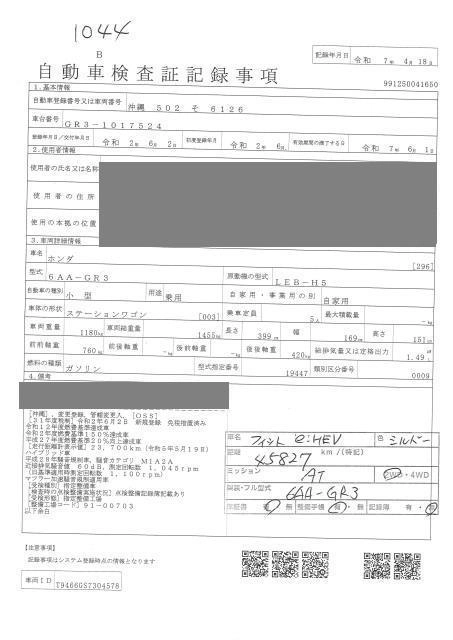 1044
B
自動車検査証記録事項
記録年月日 令和 7年 4月 18日
991250041650
1.基本情報
自動車登録番号又は車両番号 沖縄 502 そ 6126
車台番号 GR3-1017524
登録年月日/交付年月日 令和 2年 6月 2日 初度登録年月 令和 2年 6月 有効期間の満了する日 令和 7年 6月 1日
2.使用者情報
使用者の氏名又は名称
使用者の住所
使用の本拠の位置
3.車両詳細情報
車名 ホンダ [296]
型式 6AA-GR3 原動機の型式 LEB-H5
自動車の種別 小型 用途 乗用 自家用・事業用の別 自家用
車体の形状 ステーションワゴン [003] 乗車定員 5人 最大積載量 -kg
車両重量 1180kg 車両総重量 1455kg 長さ 399cm 幅 169cm 高さ 151cm
前前軸重 760kg 前後軸重 -kg 後前軸重 -kg 後後軸重 420kg 総排気量又は定格出力 1.49
燃料の種類 ガソリン 型式指定番号 19447 類別区分番号 0009
4.備考
[沖縄], 変更登録, 管轄変更入, [OSS]
[31年度税制] 令和2年6月2日 新規登録 免税措置済み
令和12年度燃費基準達成車
令和2年度燃費基準150%達成車
平成27年度燃費基準20%向上達成車
[走行距離計表示値] 23,700km (令和5年5月19日)
ハイブリッド車
平成28年騒音規制車, 騒音カテゴリ M1A2A
近接排気騒音値 60dB, 測定回転数 1,045rpm
(旧基準適用時測定回転数 1,100rpm)
マフラー加速騒音規制適用車
[受検種別] 指定整備車
[検査時の点検整備実施状況] 点検整備記録簿記載あり
[受検形態] 指定整備工場
[整備工場コード] 91-00703
以下余白
車名 フィット e:HEV 色 シルバー
距離 45827 km/(特記)
ミッション AT 2WD・4WD
類別・フル型式 6AA-GR3
保証書 有・無 整備手帳 有・無 記録簿 有・無
【注意事項】
記録事項はシステム登録時点の情報となります
車両ID T9466GS7304578